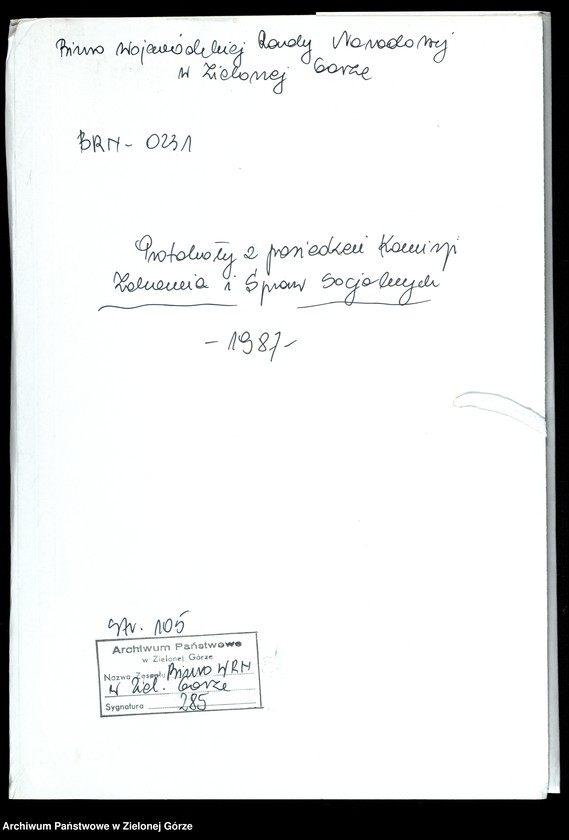 Biuro Wojewódzkiej Rady Narodowej
w Zielonej Górze
BRN - 0231
Protokoły z posiedzeń Komisji
Zdrowia i Spraw Socjalnych
- 1987 -
Str. 105
Archiwum Państwowe
w Zielonej Górze
Nazwa Zespołu Biuro WRN
w Ziel. Górze
Sygnatura 285
Archiwum Państwowe w Zielonej Górze